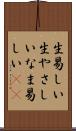 生易しい
生やさし
いなま易
しい